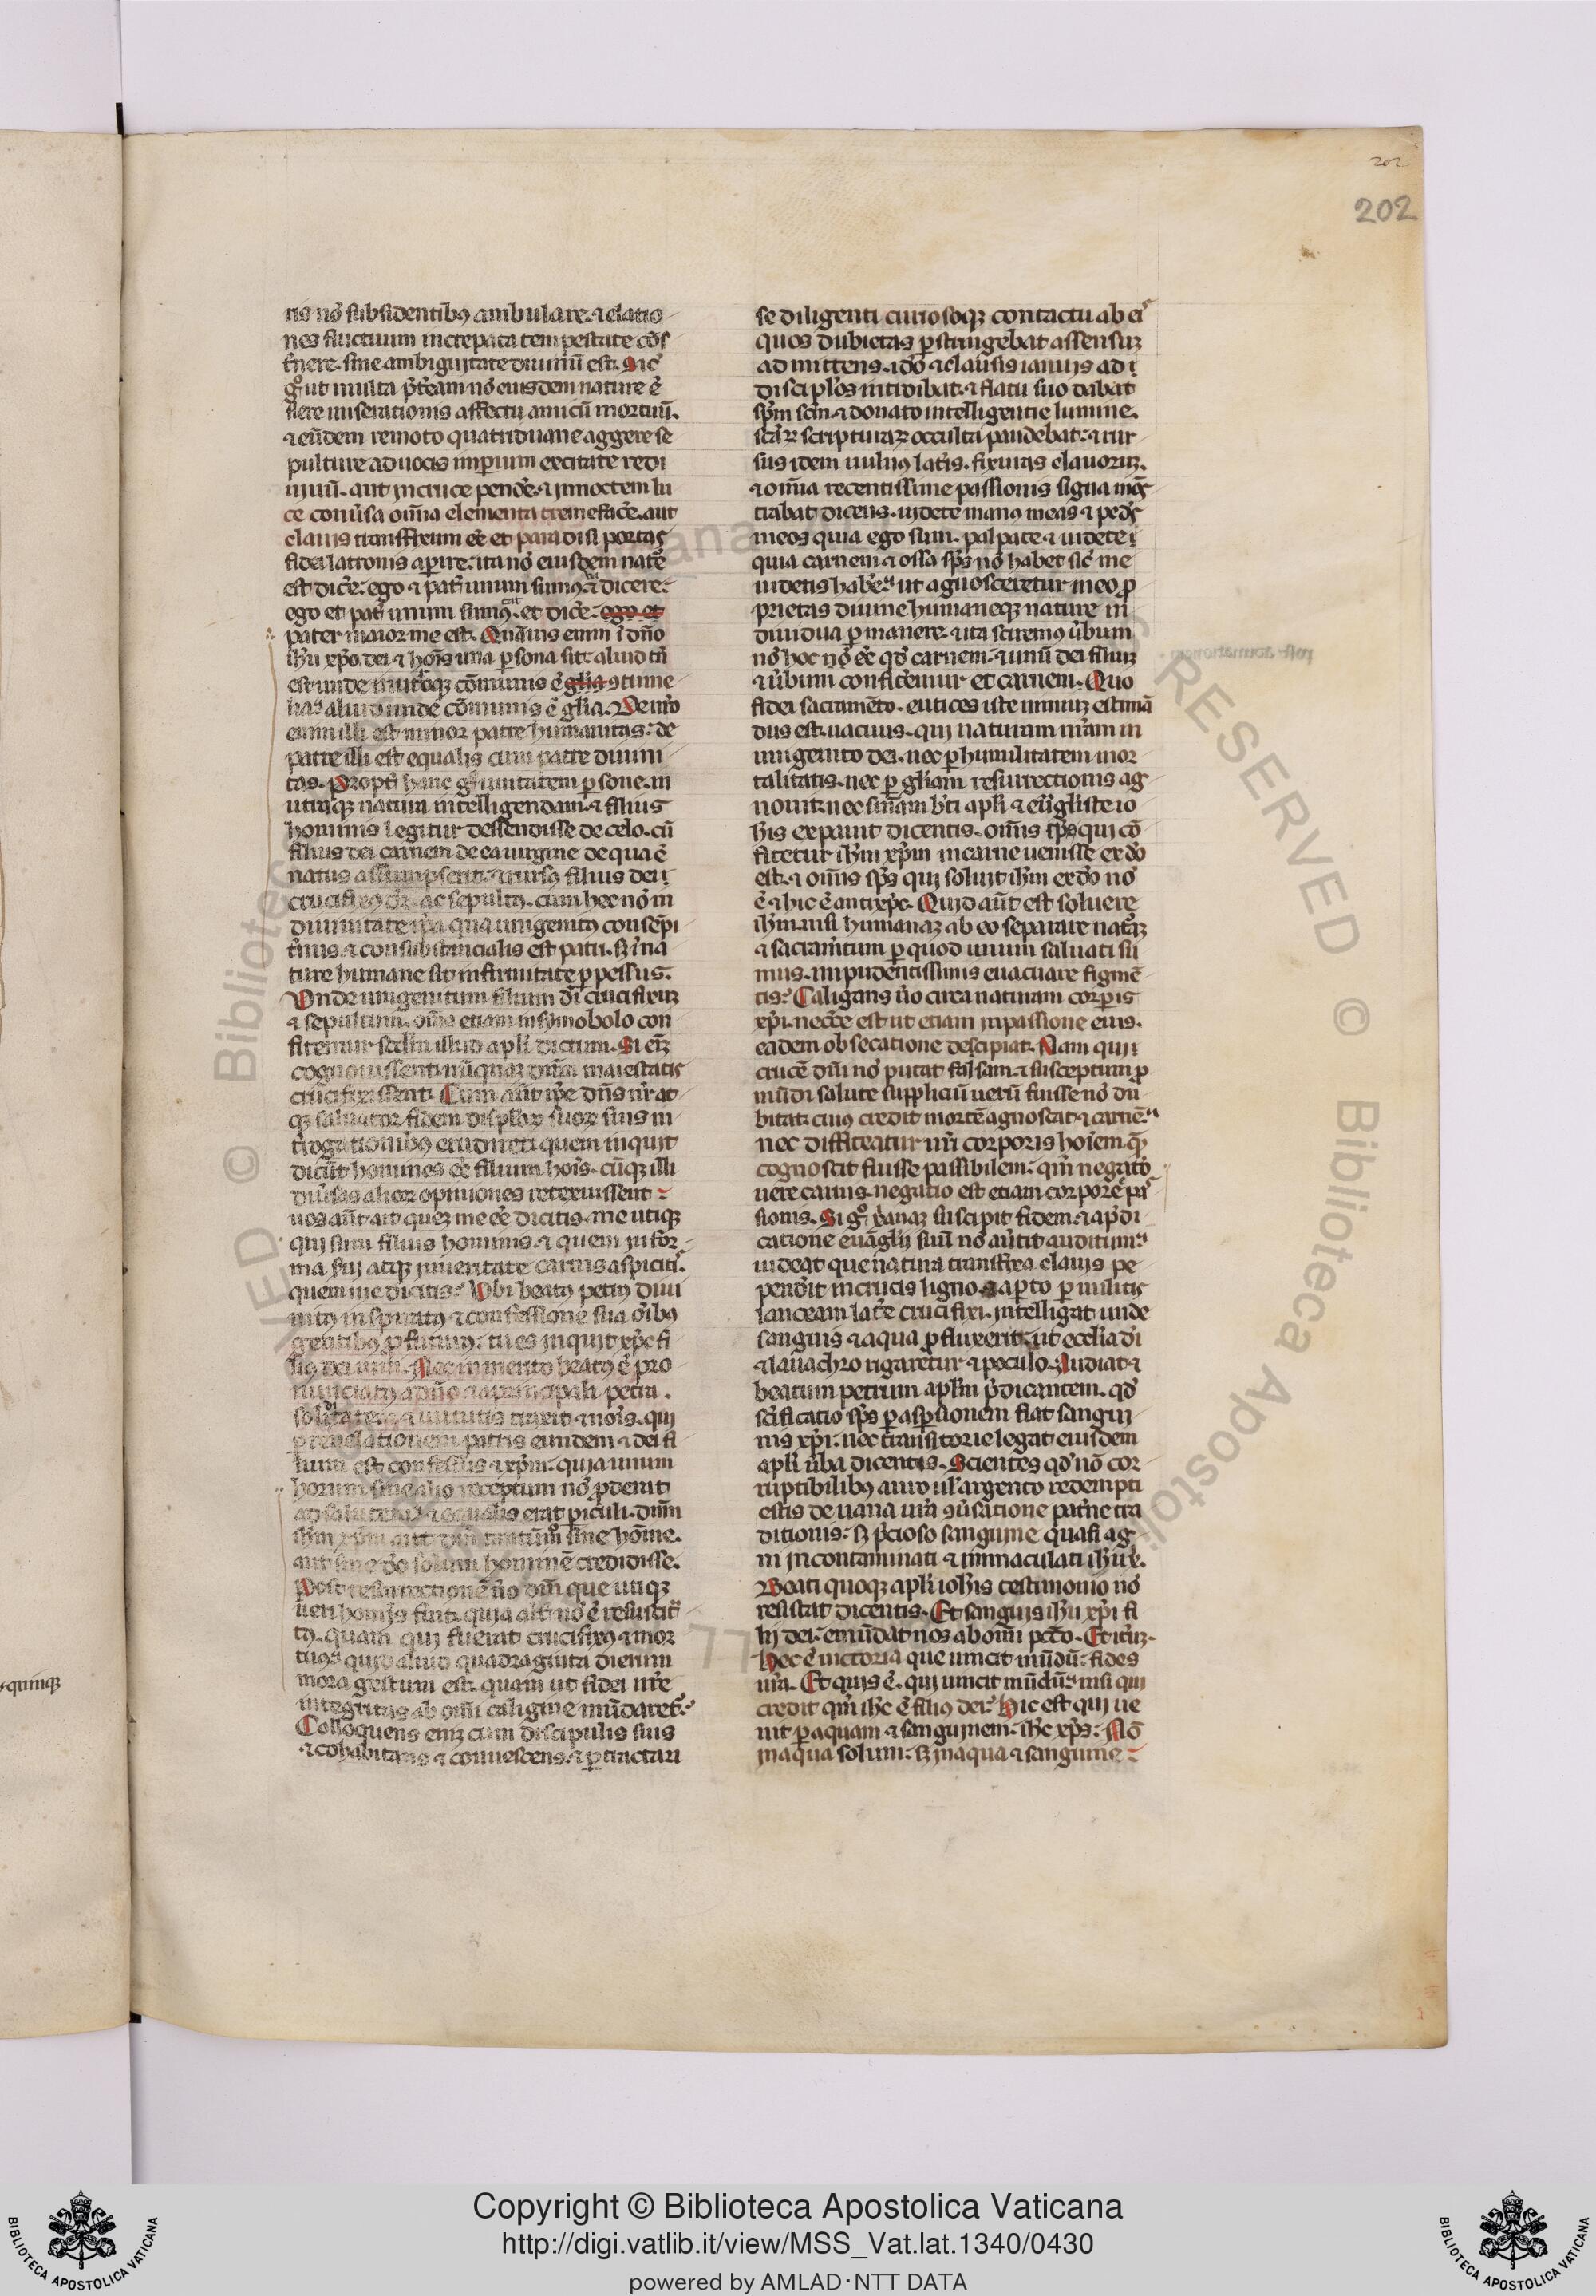 202
202
nis nō subsidentibꝰ ambulare. ⁊ elatio
nes fluctuum increpata tempestate cōs
t̄nere. sine ambiguitate diuinū est. Sic̄
gͦ ut multa p̄t̄eam nō eiusdem nature ē
flere miserationis affectu amicū mortuū.
⁊ eūdem remoto quatriduane aggere se
pulture ad uocis imp̱ium excitate redi
uiuū. aut in cruce pend̄e. ⁊ in noctem lu
ce conūsa om̄ia elementa tremefac̄e. aut
clauis transfixum ee̅ et paradisi portas
fidei latronis aperire. ita nō eiusdem nat̄e
est dic̄e. ego ⁊ pat̄ unum sumꝰ. dicere.
ego et pat̄ unum sumꝰ. et dic̄e. ego et
pater maior me est. Quāuis enim ī dn̄o
ih̄u xp̄o. dei ⁊ hoīs una ꝑsona sit. aliud tn̄
est unde in utroqꝫ cōmunis ē gl̄ia ꝯtume
lia. aliud unde cōmunis ē gl̄ia. De nr̄o
enim illi est minor patre humanitas. de
patre illi est equalis cum patre diuini
tas. Propt̄ hanc gͦ unitatem ꝑsone. in
utraqꝫ natura intelligendam. ⁊ filius
hominis legitur dessendisse de celo. cū
filius dei carnem de ea uirgine de qua ē
natus assumpserit. ⁊ rursꝰ filius dei
crucifixꝰ dr̄. ac sepultꝰ. cum hec nō in
diuinitate ip̄a qua unigenitꝰ consēpi
t̄nus. ⁊ consubstancialis est patri. sꝫ ī na
ture humane sit infirmitate ꝑpessus.
Vnde unigenitum filium di̅ crucifixuꝫ
⁊ sepultum. om̄s etiam in symobolo con
fitemur scd̄m illud apl̄i dictum. Si eīꝫ
cognouissent. nūquaꝫ dn̄m maiestatis
crucifixissent. Cum aūt ip̄e dn̄s nr̄ at
qꝫ saluator fidem disciplōꝝ suoꝝ suis in
t̄rogationibꝰ erudiret. quem inquit
dicūt homines ee̅ filium hoīs. cūqꝫ illi
diūsas alioꝝ opiniones retexuissent.
uos aūt ait queꝫ me ee̅ dicitis. me utiqꝫ
qui sum filius hominis. ⁊ quem in for
ma serui atqꝫ in ueritate carnis aspicitis.
quem me dicitis. Vbi beatꝰ petrꝰ diui
nitꝰ inspiratꝰ ⁊ confessione sua om̄ibꝰ
gentibꝰ ꝓfuturꝰ. tu es inquit xp̄c fi
liꝰ dei uiui. Nec inmerito beatꝰ ē pro
nunciatꝰ a dn̄o ⁊ a principali petra.
soliditatem ⁊ uirtutis traxit ⁊ noīs. qui
ꝑ reuelationem patris eundem ⁊ dei fi
lium est confessus ⁊ xp̄m. quia unum
horum sine alio receptum nō ꝓderat
ad salutem. ⁊ equalis erat ꝑiculi. dn̄m
ih̄m xp̄m aut dm̄ tantūmͦ sine hoīne.
aut sine dō solum hominē credidisse.
Post resurrectionē ūo dn̄i que utiqꝫ
ueri hominis fuit. quia alt̄ nō ē resuscita
tꝰ. quam qui fuerat crucifixꝰ ⁊ mor
tuꝰ. quid aliud quadraginta dierum
mora gestum est. quam ut fidei nr̄e
integritas ab om̄i caligine mūdaret̄.
Colloquens eniꝫ cum discipulis suis
⁊ cohabitans ⁊ conuescens. ⁊ ꝑtractari
se diligenti curiosoqꝫ contactu ab eis
quos dubietas ꝑstringebat assensuꝫ
admittens. idō ⁊ clausis ianuis ad
discipl̄os intrōibat. ⁊ flatu suo dabat
sp̄m scm̄. ⁊ donato intelligentie lumine.
scāꝝ scripturaꝝ occulta pandebat. ⁊ rur
sus idem uulnꝰ lat̄is. fixuras clauoruꝫ.
⁊ om̄ia recentissime passionis signa mōs
trabat dicens. uidete manꝰ meas ⁊ pedes
meos quia ego sum. palpate ⁊ uidete
quia carnem ⁊ ossa sp̄s nō habet sic̄ me
uidetis hab̄e. ut agnosceretur in eo ꝓ
prietas diuine humaneqꝫ nature in
diuidua ꝑmanere. ⁊ ita sciremꝰ ūbum
nō hoc nō ee̅ qd̄ carnem. ⁊ unū dei filiuꝫ
⁊ ūbum confit̄emur et carnem. Quo
fidei sacramēto. eutices iste nimiuꝫ estimā
dus est uacuus. qui naturam nr̄am in
unigenito dei. nec ꝑ humilitatem mor
talitatis. nec ꝑ gl̄iam resurrectionis ag
nouit. nec sn̄iam bt̄i apl̄i ⁊ eūgl̄iste io
h̄is expauit dicentis. om̄is sp̄s qui cō
fitetur ih̄m xp̄m in carne uenisse ex dō
est. ⁊ om̄is sp̄s qui soluit ih̄m ex dō nō
ē ⁊ hic ē antixp̄c. Quid aūt est soluere
ih̄m. nisi humanaꝫ ab eo separare nat̄aꝫ
⁊ sacram̄tum ꝑ quod unum saluati su
mus. impudentissimis euacuare figmē
tis. Caligans ūo circa naturam corꝑis
xp̄i. necc̄e est ut etiam in passione eius.
eadem obsecatione descipiat. Nam qui
crucē dn̄i nō putat falsam. ⁊ susceptum ꝓ
mūdi salute suppliciū uerū fuisse nō du
bitat. cuiꝰ credit mortē agnoscat ⁊ carnē.
nec diffiteatur nr̄i corporis hoīem. qm̄
cognoscit fuisse passibilem. qm̄ negatō
uere carnis. negatio est etiam corporē pas
sionis. Si gͦ xp̄ianaꝫ suscipit fidem. ⁊ a p̄di
catione euāglij suū nō au̅tit auditum.
uideat que natura transfixa clauis pe
pend̄it in crucis ligno. ⁊ aꝑto ꝑ militis
lanceam lat̄e crucifixi. intelligat unde
sanguis ⁊ aqua ꝓfluxerit. ut eccl̄ia di̅
⁊ lauachro rigaretur ⁊ poculo. Audiat ⁊
beatum petrum apl̄m p̄dicantem. qd̄
sc̄ificatio sp̄s ꝑ asꝑsionem fiat sangui
nis xp̄i. nec transitorie legat eiusdem
apl̄i ūba dicentis. Scientes qd̄ nō cor
ruptibilibus auro ul̄ argento redempti
estis de uana ur̄a ꝯūsatione pat̄ne tra
ditionis. sꝫ p̄cioso sanguine quasi ag
ni incontaminati ⁊ inmaculati ih̄u x̄.
Beati quoqꝫ apl̄i ioh̄is testimonio nō
resistat dicentis. Et sanguis ih̄u xp̄i fi
lij dei. emūdat nos ab om̄i pcc̄o. Et it̄uꝫ.
Hec ē uictoria que uincit mūdū. fides
nr̄a. Et quis ē. qui uincit mūdū. nisi qui
credit qm̄ ih̄c ē filiꝰ dei. Hic est qui ue
nit ꝑ aquam ⁊ sanguinem. ih̄c xp̄s. Nō
in aqua solum. sꝫ in aqua ⁊ sanguine.
quinqꝫ
Copyright © Biblioteca Apostolica Vaticana
http://digi.vatlib.it/view/MSS_Vat.lat.1340/0430
powered by AMLAD·NTT DATA
BIBLIOTECA APOSTOLICA VATICANA
BIBLIOTECA APOSTOLICA VATICANA